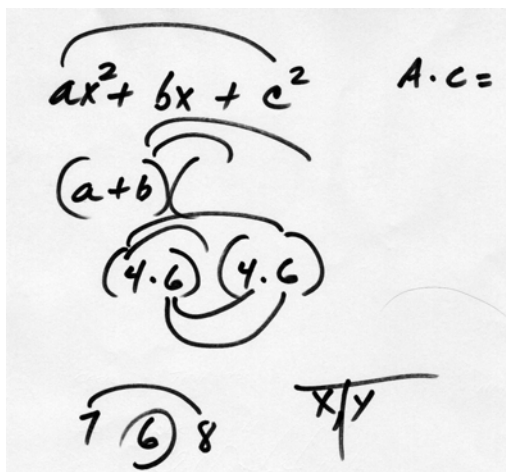 ax²+ bx + c² A·c=
(a+b)(
(4·6) (4·6)
7 6 8 X, Y